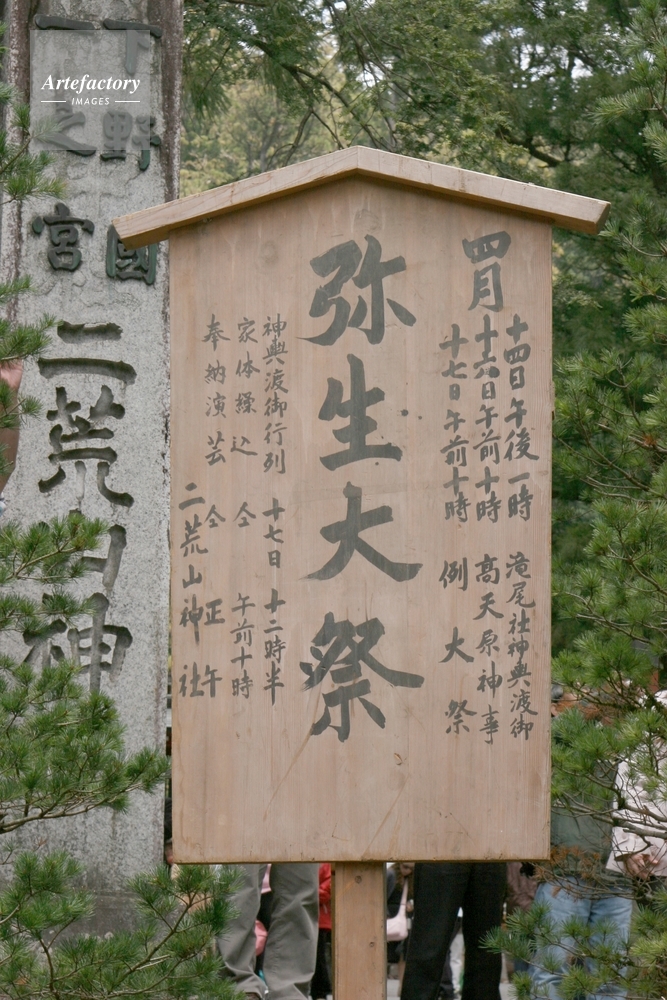 Artefactory
IMAGES
四月
十四日午後一時 滝尾社神輿渡御
十六日午前十時 高天原神事
十七日午前十時 例大祭
弥生大祭
神輿渡御行列 十七日 十二時半
家体操込 仝 午前十時
奉納演芸 仝 正午
二荒山神社
下野國
一之宮
二荒山神